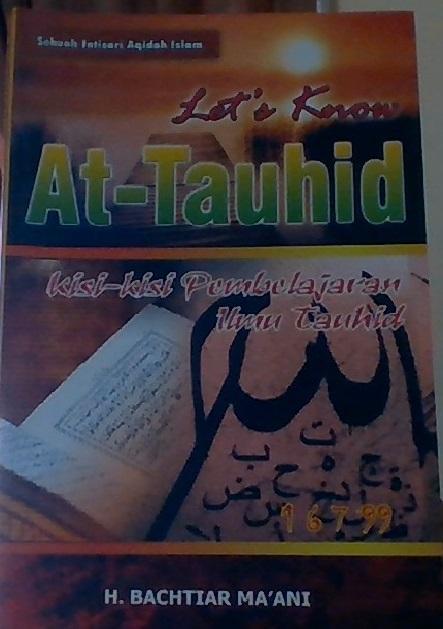 Sebuah Intisari Aqidah Islam
Let's Know
At-Tauhid
kisi-kisi Pembelajaran
Ilmu Tauhid
الله
ت
ب
ج
ض
1 6 7 '99
H. BACHTIAR MA'ANI